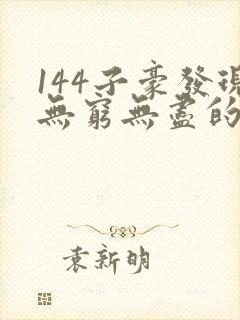 144子豪發現
無窮無盡的
袁新明